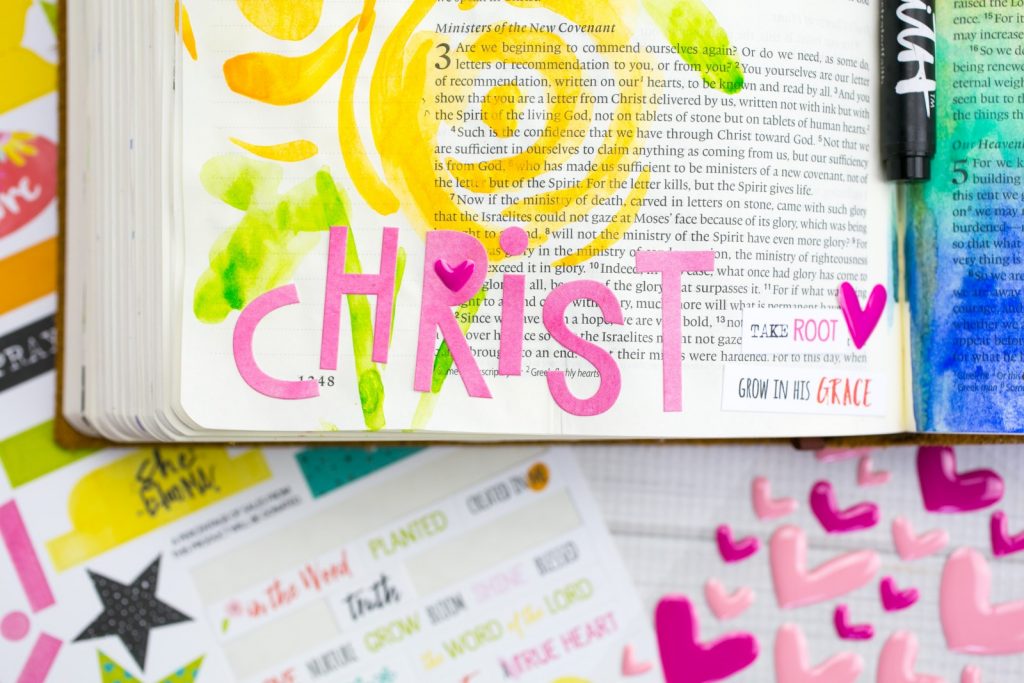 Ministers of the New Covenant
3 Are we beginning to commend ourselves again? Or do we need, as some do,
letters of recommendation to you, or from you? 2 You yourselves are our letter
of recommendation, written on our hearts, to be known and read by all. 3 And you
show that you are a letter from Christ delivered by us, written not with ink but with
the Spirit of the living God, not on tablets of stone but on tablets of human hearts.
4 Such is the confidence that we have through Christ toward God. 5 Not that we
are sufficient in ourselves to claim anything as coming from us, but our sufficiency
is from God, 6 who has made us sufficient to be ministers of a new covenant, not of
the letter but of the Spirit. For the letter kills, but the Spirit gives life.
7 Now if the ministry of death, carved in letters on stone, came with such glory
that the Israelites could not gaze at Moses' face because of its glory, which was being
to an end, 8 will not the ministry of the Spirit have even more glory? 9 For
glory in the ministry of the ministry of righteousness
exceed it in glory. 10 Indeed, in case, what once had glory has come
glory all, because of the glory that surpasses it. 11 For if what was
to an end came with glory, much more will what is permanent have
Since we have a hope, we are very bold, 13 not
over his face so the Israelites might not gaze
brought to an end. But their minds were hardened. For to this day, when
1248
2 Greek fleshly hearts
CHRIST
TAKE ROOT
GROW IN HIS GRACE
raised the Lo
ence. 15 For it
may increase
16 So we do
being renewe
eternal weigh
seen but to th
the things th
Our Heavenly
5 For we k
building
this tent we g
on we may
burdened—
so that what
very thing is
we are away
courage, and
whether we
appear before
for what he
PRAY
she
blooms
PLANTED
CREATED IN
in the Word
truth
GROW
BLOOM
SHINE
BLESSED
NURTURE
the WORD of the LORD
TRUE HEART